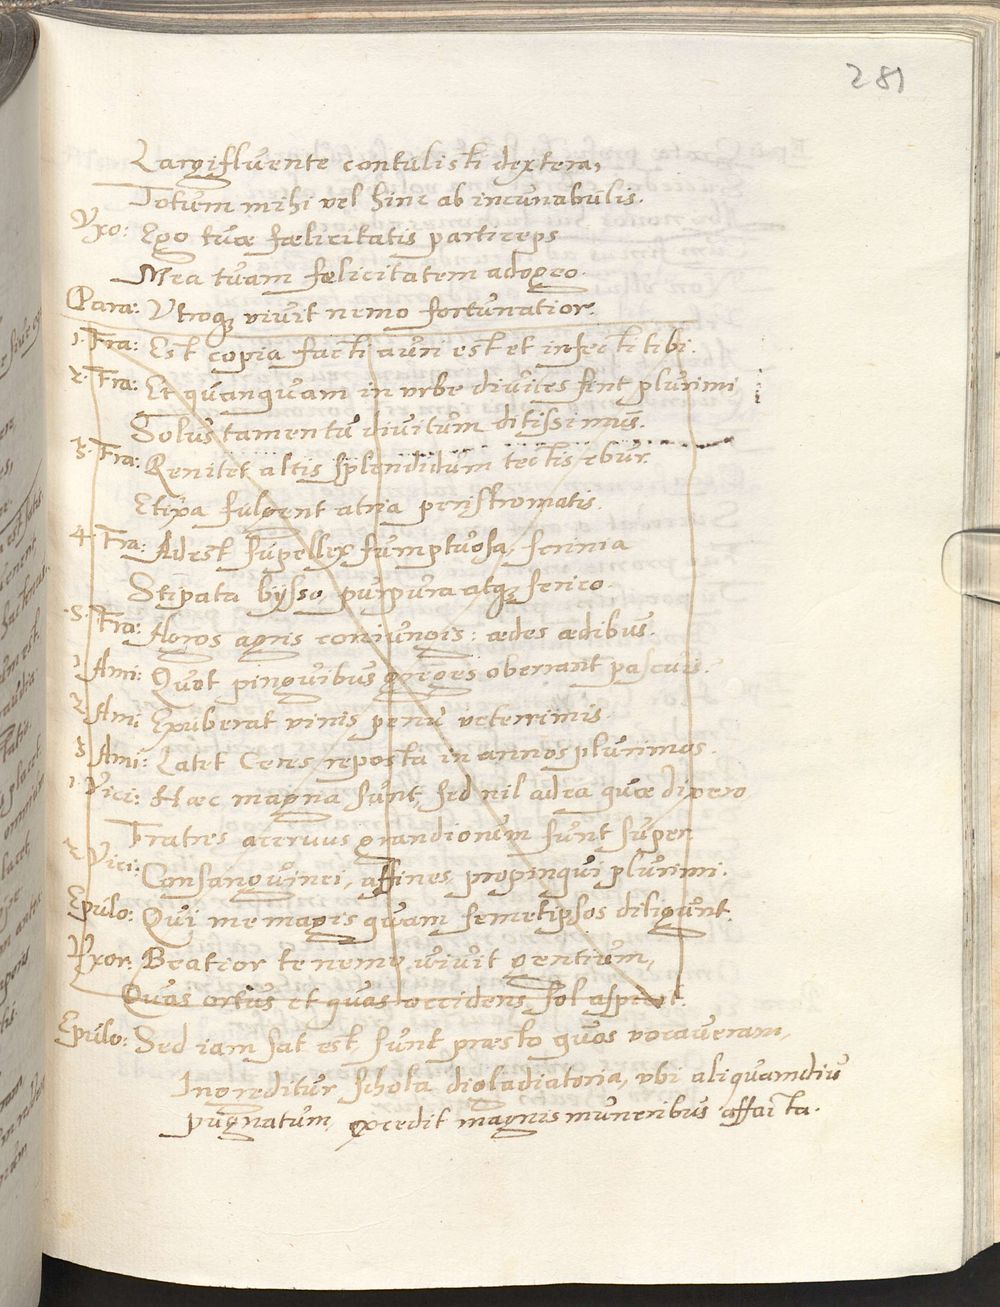 281
Largifluente contulisti dextera,
Totum mihi vel hinc ab incunabulis.
Vxo: Ego tuæ fælicitatis particeps
Mea tuam fælicitatem adogeo.
Para: Vtroq; vivit nemo fortunatior.
1. Fra: Est copia facti auri est et infecti tibi.
2. Fra: Et quanquam in vrbe divites sint plurimi
Solus tamen tu divitum ditissimus.
3. Fra: Renitet altis splendidum tectis ebur.
Et ipa fulgent atria peristromatis.
4. Fra: Adest supellex sumptuosa, scrinia
Stipata bysso purpura atq; serico.
5. Fra: Agros agris coniungis: ædes ædibus.
1 Ami: Quot pinguibus greges oberrant pascuis.
2 Ami Exuberat vinis penu veterrimis
3 Ami: Latet Ceres reposta in annos plurimos.
1. Vici: Hæc magna sunt, sed nil ad ea quæ dixero
Fratres acervus grandionum sunt super
2. Vici: Consanguinei, affines, propinqui plurimi.
Epulo: Qui me magis quam semetipsos diligunt.
Vxor. Beatior te nemo vivit gentium,
Quas ortus et quas occidens sol aspicit.
Epulo: Sed iam sat est, sunt præsto quos vocaveram,
Ingreditur schola digladiatoria, vbi aliquamdiu
pugnatum, excedit magnis muneribus affecta.